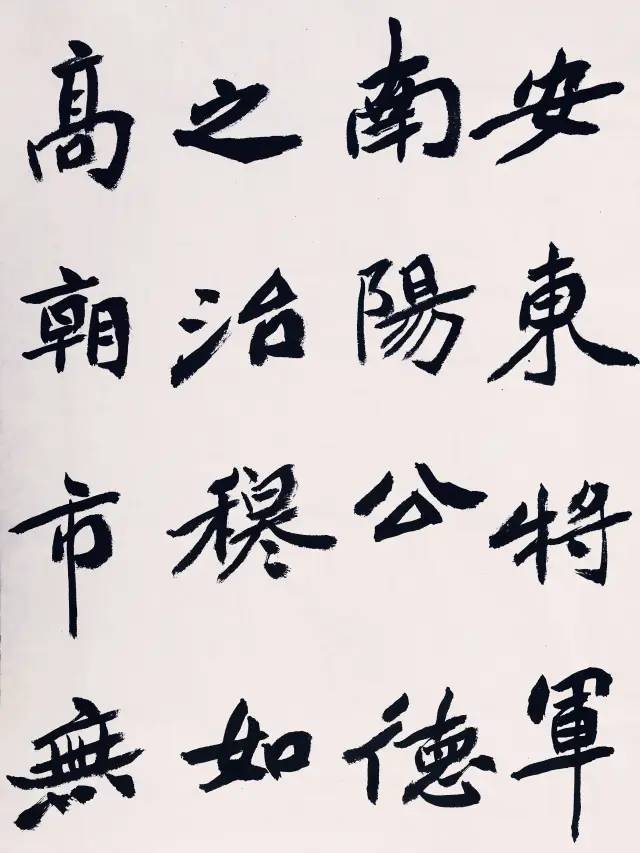 安東將軍
南陽公德
之治穆如
高朝市無